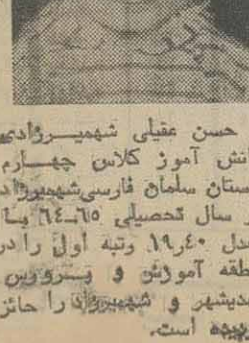 حسن عقیلی شهمیـــرزادی
انش آموز کلاس چهـــارم
ستان سلمان فارسی شهمیرزاد
سال تحصیلی ۶۵ـ۶۴ بـا
عدل ۱۹٫۴۰ رتبه اول را در
طقه آموزش و پـــرورش
دیشهر و شهمیرزاد را حائز
دیده است.